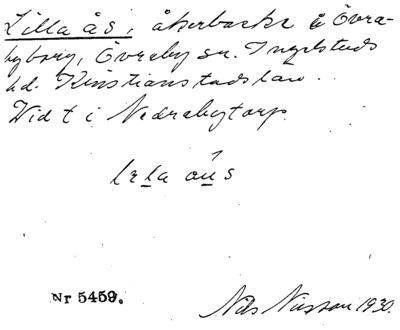 Lilla ås, åkerbacke i Övra-
byborg, Övraby sn. Ingelstads
hd. Kristianstads län.
Vid t i Nedrabytorp
Nr 5459.
Nils Nilsson 1930.